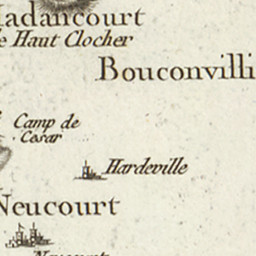 adancourt
e Haut Clocher
Bouconvilli
Camp de
Cesar
Hardeville
Neucourt